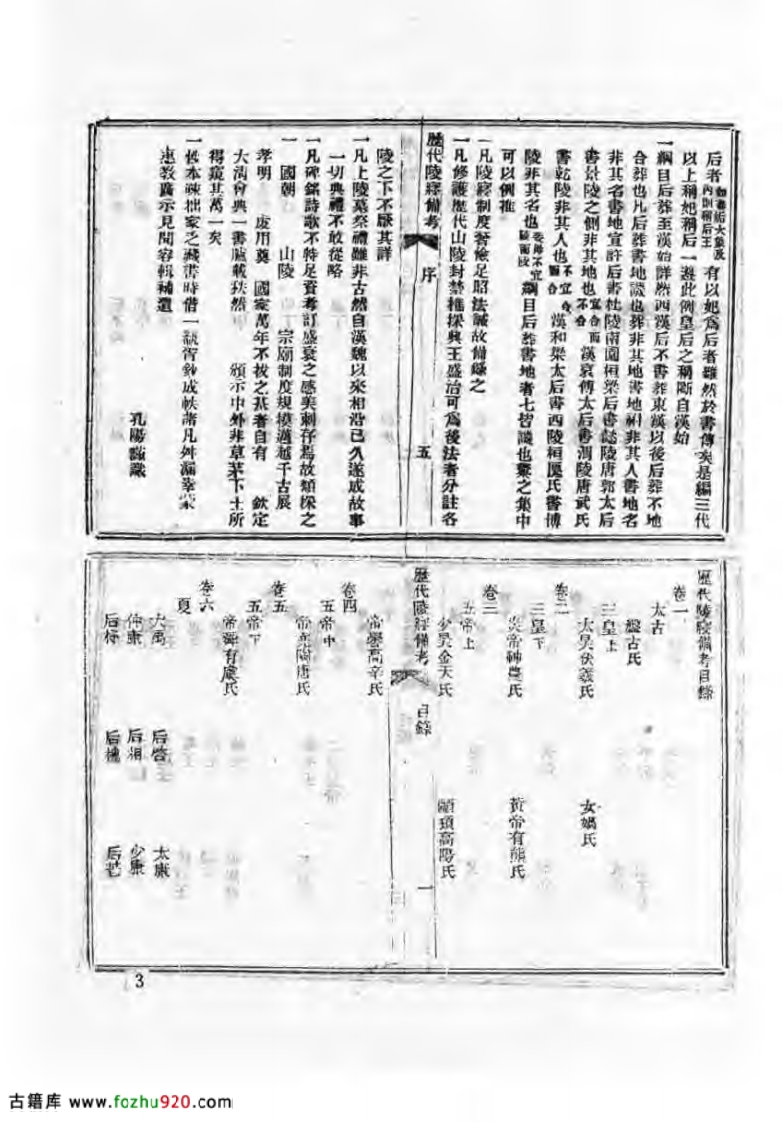 后者如舊姤大象及內則稱后王有以妃爲后者雖然於書傳矣是編三代
以上稱妃稱后一遵此例皇后之稱斷自漢始
一綱目后葬至漢始詳然西漢后不書葬東漢以後后葬不地
合葬也凡后葬書地譏也葬非其地書地祔非其人書地名
非其名書地宣許后書杜陵南園桓梁后書懿陵唐郭太后
書景陵之側非其地也宜合而不合漢哀傅太后書渭陵唐武氏
書乾陵非其人也不宜合而合漢和梁太后書西陵桓匽氏書博
陵非其名也綱目后葬書地者七皆譏也彙之集中
可以例推
一凡陵寢制度奢儉足昭法誡故備錄之
一凡修護歷代山陵封禁樵採典王盛治可爲後法者分註各
歷代陵寢備考 序 五
陵之下不厭其詳
一凡上陵墓祭禮雖非古然自漢魏以來相沿已久遂成故事
一切典禮不敢從略
一凡碑銘詩歌不特足資考訂盛衰之感美刺存焉故類採之
一國朝 山陵 宗廟制度規模遠越千古展
孝明 虔用奠 國家萬年不拔之基者自有 欽定
大清會典一書臚載秩然 頒示中外非草茅下士所
得窺其萬一矣
一是本疎拙家乏藏書時借一瓻胥鈔成帙諸凡舛漏幸
速教匡示見聞容輯補遺
孔陽謹識
歷代陵寢備考目錄
卷一
太古
盤古氏
三皇上
太昊伏羲氏 女媧氏
卷二
三皇下
炎帝神農氏 黃帝有熊氏
卷三
五帝上
少昊金天氏 顓頊高陽氏
歷代陵寢備考 目錄 一
帝嚳高辛氏
卷四
五帝中
帝堯陶唐氏
卷五
五帝下
帝舜有虞氏
卷六
夏
大禹 后啓 太康
仲康 后相 少康
后杼 后槐 后芒
3
古籍库 www.fozhu920.com